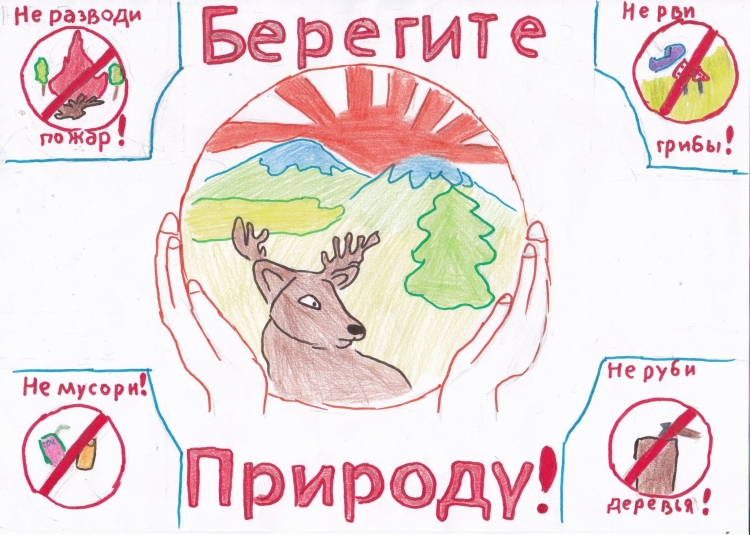 Не разводи
пожар!
Берегите
Не рви
грибы!
Не мусори!
Природу!
Не руби
деревья!